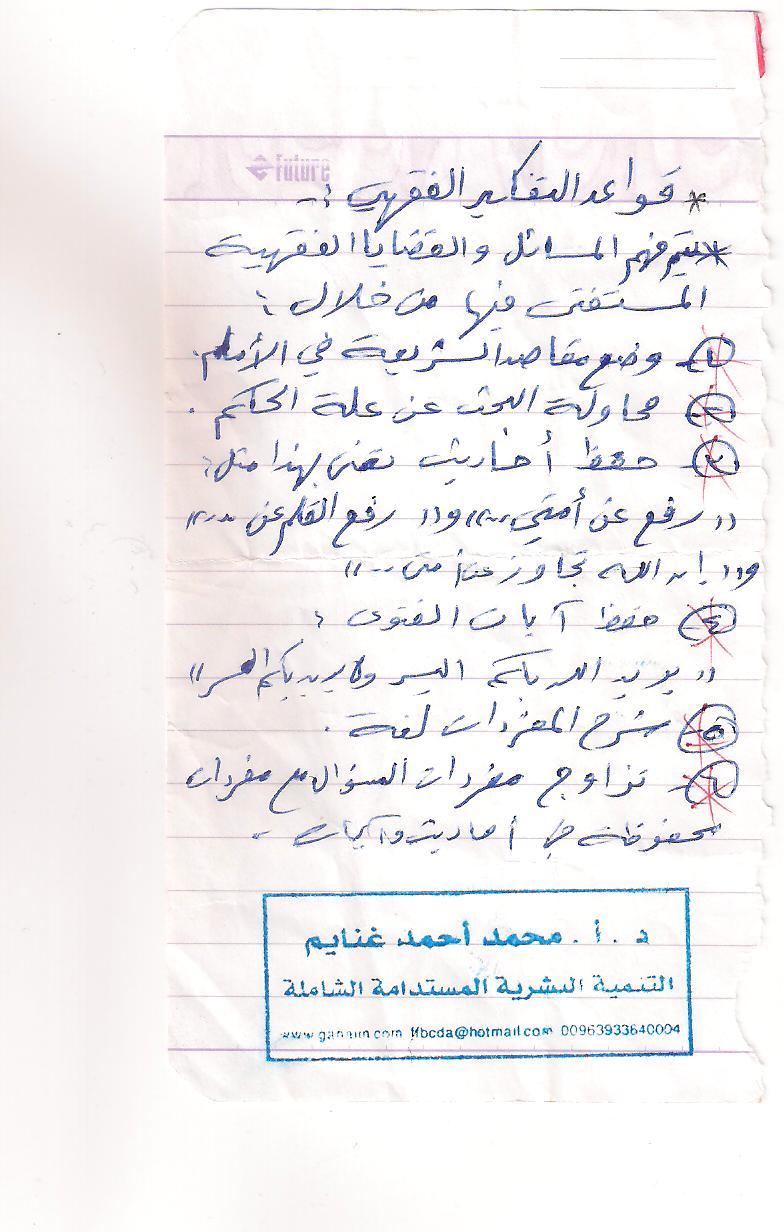 future
* قواعد التفكير الفقهي :-
* يتم فهم المسائل والقضايا الفقهية
المستفتى فيها من خلال :
١- وضع مقاصد الشريعة في الأمام.
٢- محاولة البحث عن علة الحكم .
٣- حفظ أحاديث تعنى بهذا مثل:
(( رفع عن أمتي...)) و(( رفع القلم عن ...))
و(( إن الله تجاوز عن أمتي ...))
٤- حفظ آيات الفتوى :
(( يريد الله بكم اليسر ولا يريد بكم العسر ))
٥- شرح المفردات لغة .
٦- تزاوج مفردات السؤال مع مفردات
محفوظة في أحاديث وآيات .
د . أ . محمد أحمد غنايم
التنمية البشرية المستدامة الشاملة
www.ganaim.com ffbcda@hotmail.com 00963933640004